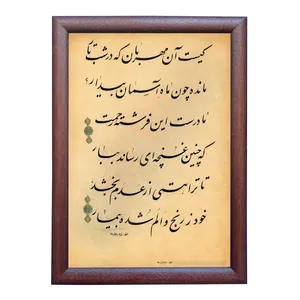 کیست آن مهربان که در شب تار
مانده چون ماه آسمان بیدار؟
مادرست این فرشته رحمت
که چنین غنچه‌ای رساند ببار
تا ترا هستی از عدم بخشد
خود ز رنج و الم شده بیمار